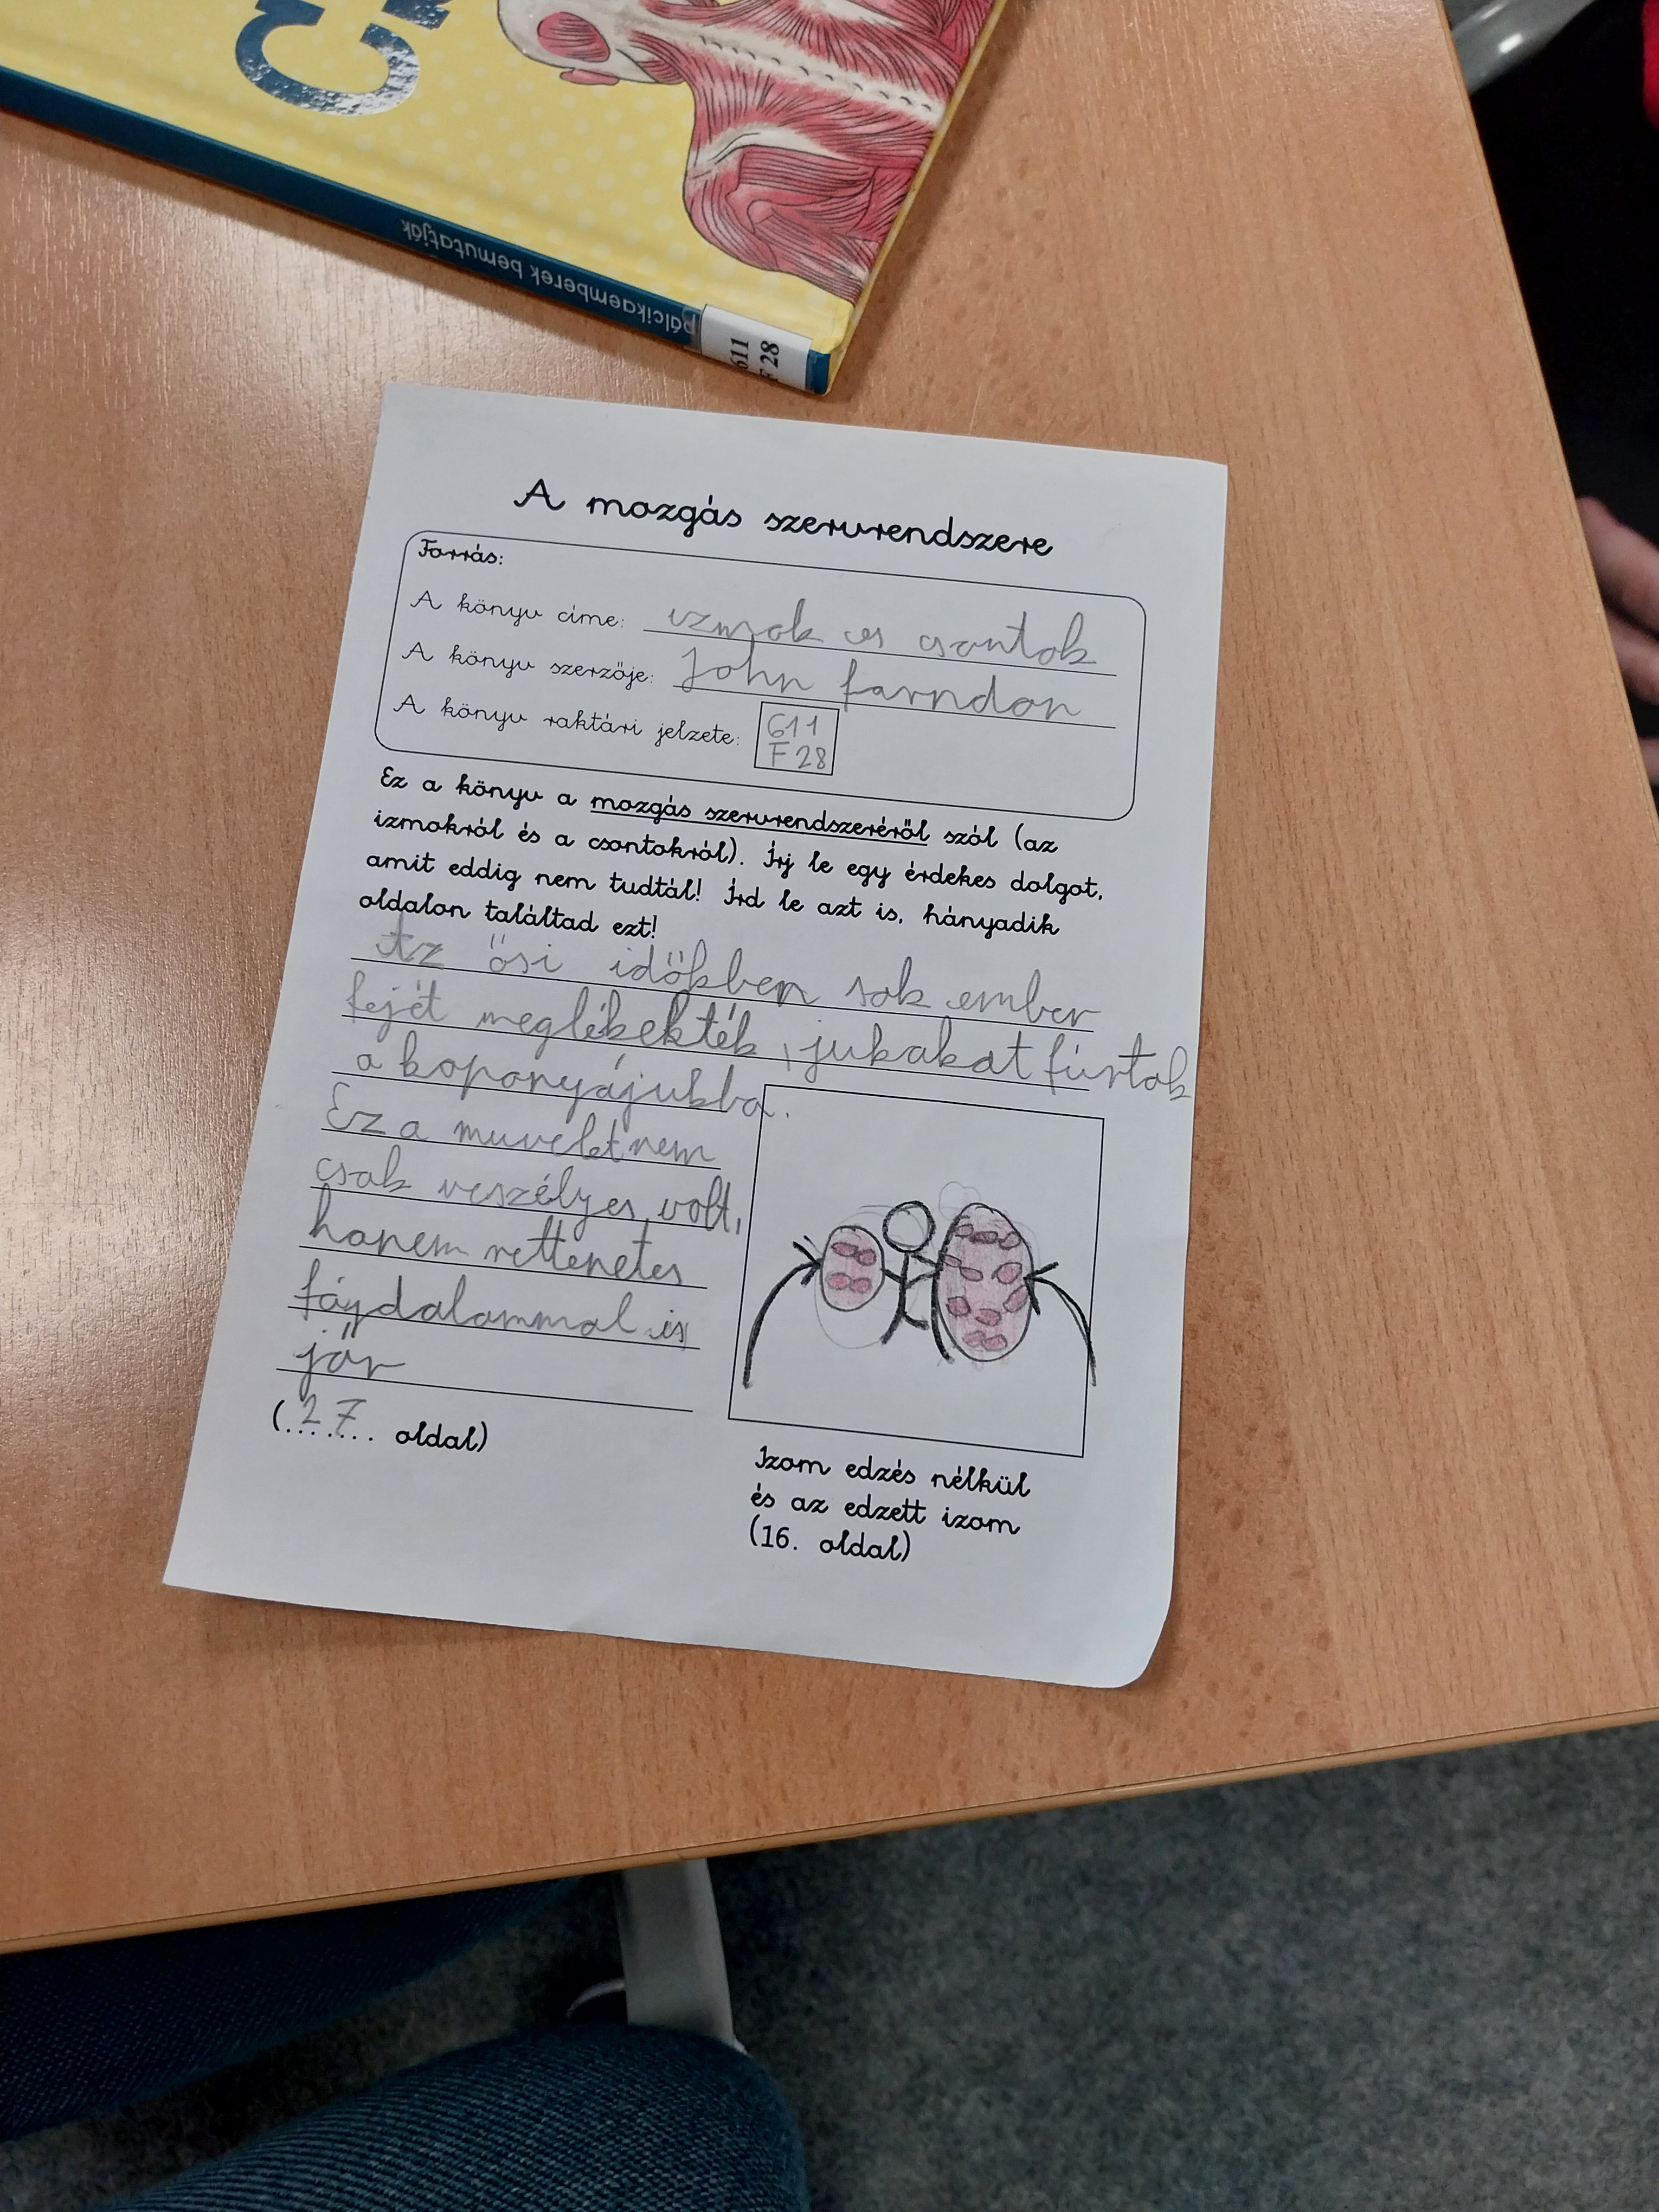 pálcikaemberek bemutatják
611
F 28
A mozgás szervrendszere
Forrás:
A könyv címe: izmok es csontok
A könyv szerzője: John farndon
A könyv raktári jelzete: 611
F 28
Ez a könyv a mozgás szervrendszeréről szól (az
izmokról és a csontokról). Írj le egy érdekes dolgot,
amit eddig nem tudtál! Írd le azt is, hányadik
oldalon találtad ezt!
Az ősi időkben sok ember
fejét meglékelték, jukakat fúrtak
a koponyájukba.
Ez a muvelet nem
csak veszélyes volt,
hanem rettenetes
fáydalammal is
jár
(27 oldal)
Izom edzés nélkül
és az edzett izom
(16. oldal)